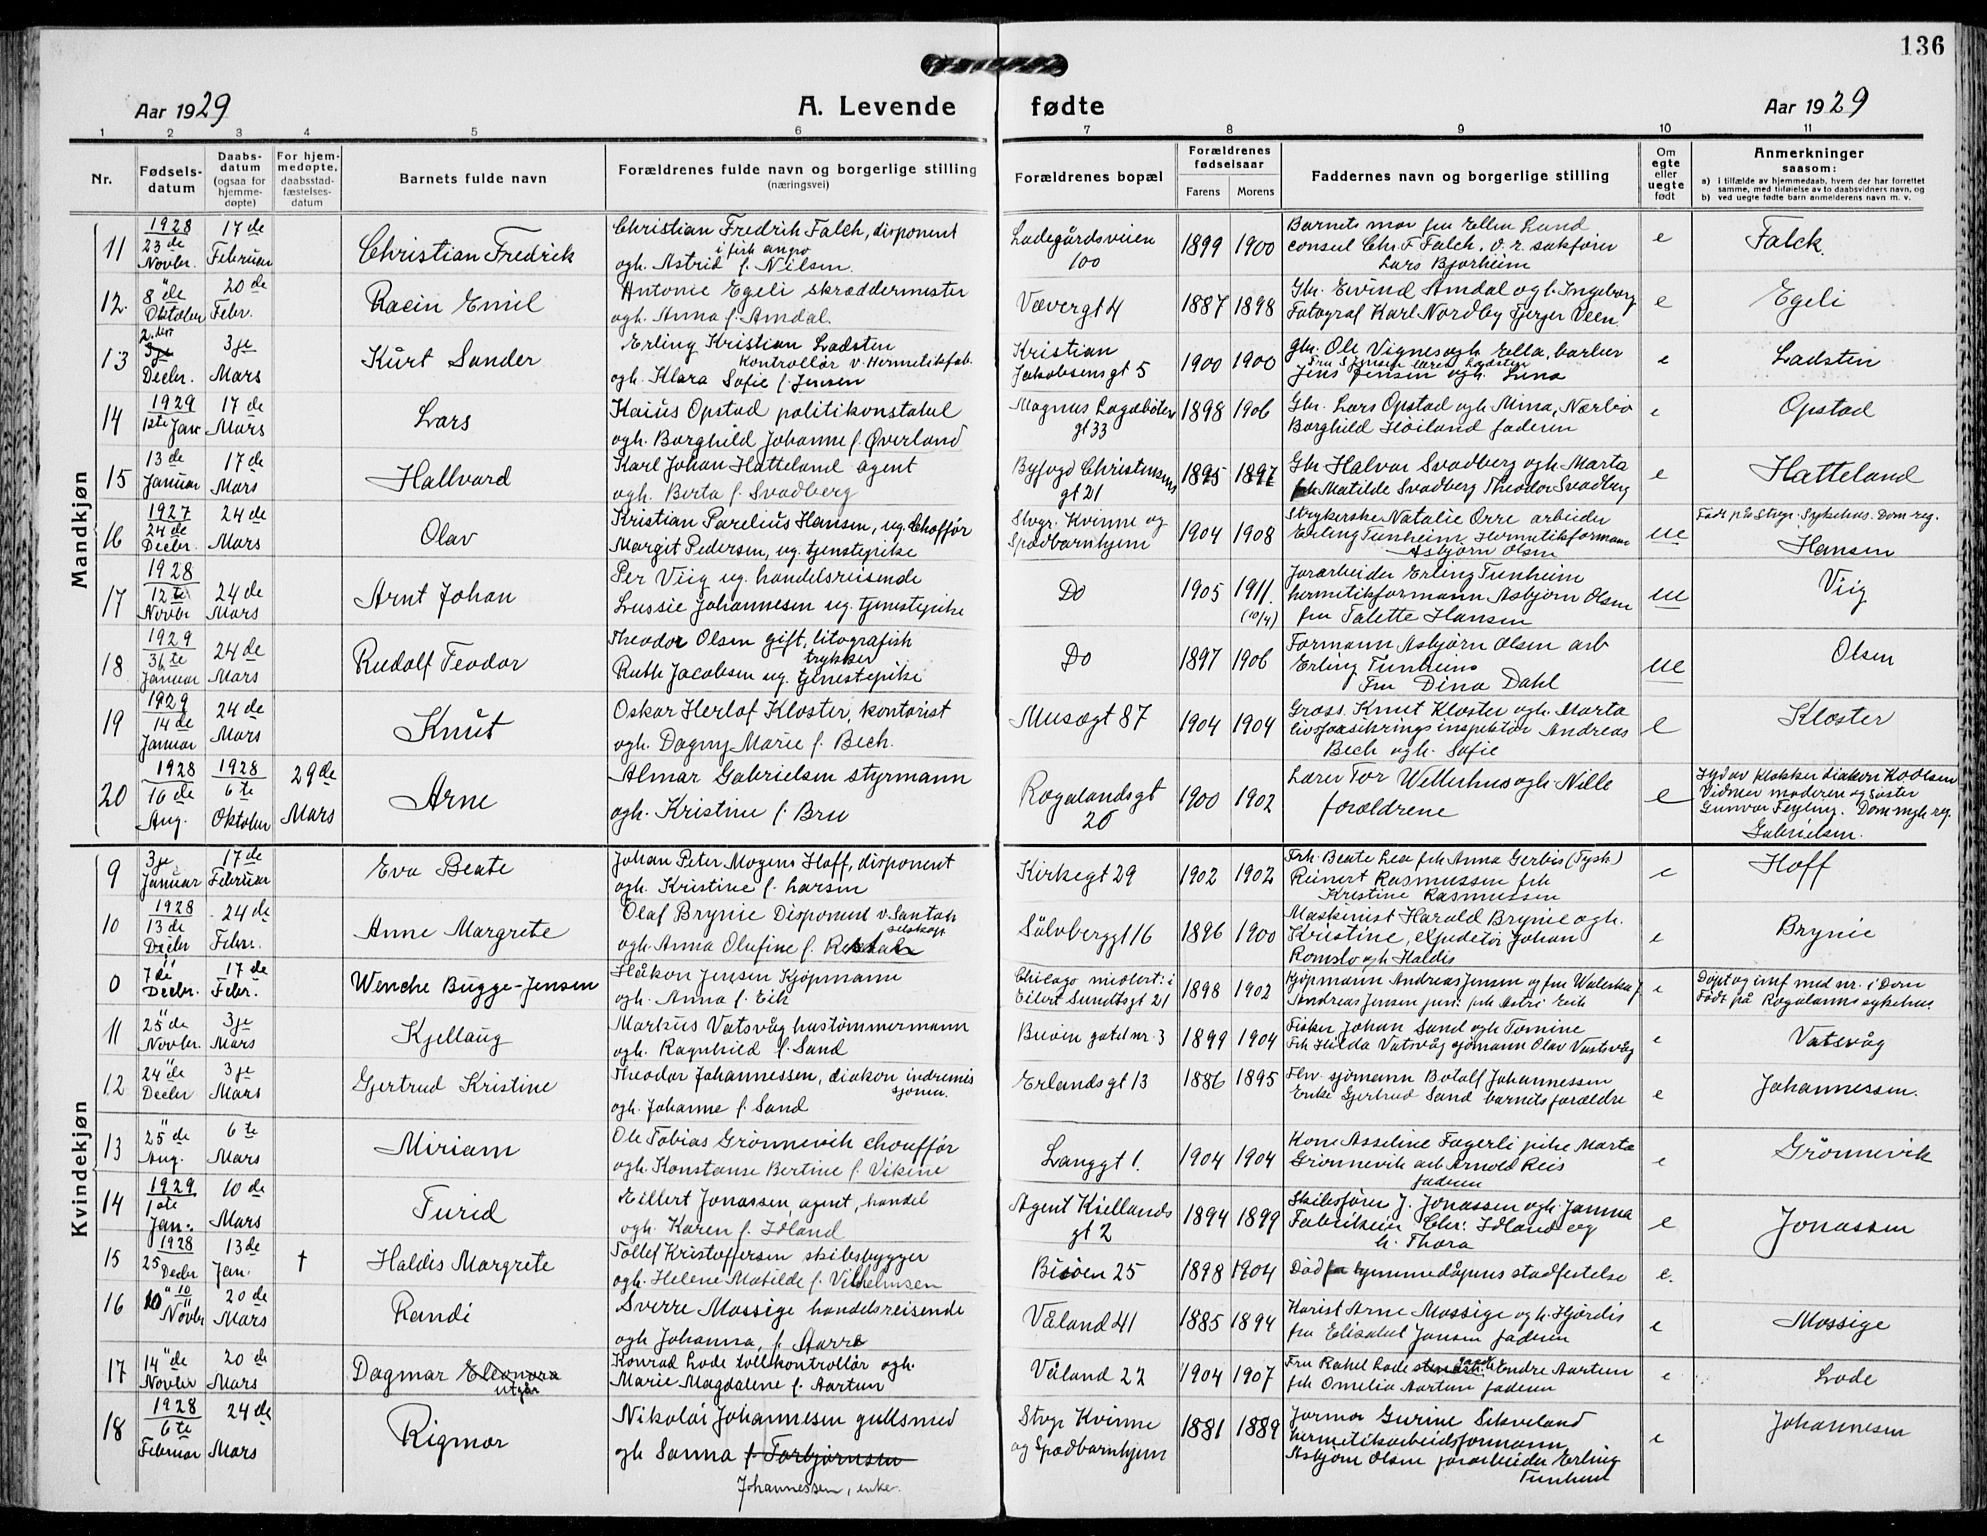 136
Aar 1929
A. Levende
fødte
Aar 1929
1 2 3 4 5 6 7 8 9 10 11
Nr.
Fødsels-
datum
Daabs-
datum
(ogsaa for
hjemme-
døpte)
For hjem-
medøpte,
daabsstad-
fæstelses-
datum
Barnets fulde navn
Forældrenes fulde navn og borgerlige stilling
(næringsvei)
Forældrenes bopæl
Forældrenes
fødselsaar
Farens Morens
Faddernes navn og borgerlige stilling
Om
egte
eller
uegte
født
Anmerkninger
saasom:
a) i tilfælde av hjemmedaab, hvem der har forrettet
samme, med tilføielse av to daabsvidners navn, og
b) ved uegte fødte barn anmelderens navn m. v.
Mandkjøn
11 1928 23de Novbr. 17de Februar Christian Fredrik
Christian Fredrik Falch, disponent
i fisk
ogh. Astrid f. Nilsen.
Ladegårdsveien
100
1899 1900
Barnets mor fru Ellen Lund
consul Chr. F. Falch, o.r. sakfører
Lars Bjorheim
e Falck.
12. 8de Oktober 20de Febr. Racin Emil
Antonie Egeli skræddermester
ogh. Anna f. Amdal.
Vævergt 4
1887 1898
Gbr. Eivind Amdal og h. Ingeborg
Fotograf Karl Nordby Veen
e Egeli
13 Decbr. 3je Mars Kurt Sander
Erling Kristian Ladstein
Kontrollør v. Hermetikfab.
ogh. Klara Sofie f. Jensen
Kristian
Jakobsensgt 5
1900 1900
gbr. Ole Vignes ogh. Ella, barber
Jens Jensen ogh. Lina
e Ladstein
14 1929 1ste Jan 17de Mars Lars
Kaius Opstad politikonstabel
ogh. Borghild Johanne f. Øverland
Magnus Lagabøters
gt 33
1898 1906
Gbr. Lars Opstad ogh Mina, Nærbø
Borghild Høiland faderen
e Opstad
15 13de Januar 17de Mars Hallvard
Karl Johan Hatteland agent
ogh. Berta f. Svadberg
Byfogd Christensens
gt 21
1895 1897
Gbr. Halvor Svadberg ogh. Marta
frk Matilde Svadberg Theodor Svadberg
e Hatteland
16 1927 24de Decbr. 24de Mars Olav
Kristian Parelius Hansen, ug. Chofför
Margit Pedersen, ug. tjenestepike
Stvgr. Kvinne og
Spædbarnhjem
1904 1908
Strykerske Natalie Orre arbeider
Erling Tunheim, Hermetikformann
Asbjørn Olsen
ue Født på Stvgr. Sykehus. Dom reg.
Hansen
17 1928 12te Novbr 24de Mars Arnt Johan
Per Viig ug. handelsreisende
Lussie Johannesen ug. tjenestepike
Do
1905 1911.
(10/4)
Jorarbeider Erling Tunheim
hermetikformann Asbjørn Olsen
fru Talette Hansen
ue Viig
18 1929 Januar 24de Mars Rudolf Teodor
Theodor Olsen gift, litografisk
trykker
Ruth Jacobsen ug. tjenestepike
Do
1897 1906
Formann Asbjørn Olsen arb
Erling Tunheim
Fru Dina Dahl
ue Olsen
19 1929 14de Januar 24de Mars Knut
Oskar Herlof Kloster, kontorist
ogh. Dagny Marie f. Bech.
Musegt 87
1904 1904
Gross. Knut Kloster ogh. Marta
livsforsikrings inspektør Andreas
Bech ogh. Sofie
e Kloster
20 1928 16de Aug. 1928 6te Oktober 29de Mars Arne
Almar Gabrielsen styrmann
ogh. Kristine f. Bru
Rogalandsgt
26
1900 1902
Lærer Tor Wetterhus ogh. Nille
forældrene
e av klokker diakon K. Olsen
Vidner moderen og søster
Gunvor Feyling. Dom mgh reg.
Gabrielsen.
Kvindekjøn
9 3je Januar 17de Februar Eva Beate
Johan Peter Mogens Hoff, disponent
ogh. Kristine f. Larsen
Kirkegt 29
1902 1902
Frk. Beate Lea frk Anna Gerbis (Tysk)
Reinert Rasmussen frk
Kristine Rasmussen
e Hoff
10 1928 13de Decbr 24de Febr. Anne Margrete
Olaf Brynie Disponent v.
selskap
ogh. Anna Olufine f.
Sølvberggt 16
1896 1900
Maskinist Harald Brynie ogh.
Kristine, expeditør Johan
Romslo ogh Haldis
e Brynie
0 7de Decbr. 17de Febr. Wenche Bugge-Jensen
Håkon Jensen Kjøpmann
ogh. Anna f. Eik
Chicago midlert: i
Eilert Sundtsgt 21
1898 1902
Kjøpmann Andreas Jensen og fru Waleska J.
Andreas Jensen jun: frk Astri Eik
e Døpt og inf med nr. i Dom
Født på Rogalands sykehus.
11 25de Novbr. 3je Mars Kjellaug
Markus Vatsvåg hustømmermann
ogh. Ragnhild f. Sand
Buøen gatel nr. 3
1899 1904
Fisker Johan Sand ogh Tomine
Frk Hilda Vatsvåg sjømann Olav Vatsvåg
e Vatsvåg
12 24de Decbr 3je Mars Gjertrud Kristine
Theodor Johannessen, diakon indremis
sjømm.
ogh. Johanne f. Sand
Erlandsgt 13
1886 1895
Fhv. sjømann Botolf Johannessen
Enke Gjertrud Sand barnets forældre
e Johannessen.
13 25de Aug. 6te Mars Miriam
Ole Tobias Grønnevik chouffør
ogh. Konstanse Bertine f. Vikine
Langgt 1.
1904 1904
Kone Asseline Fagerli pike Marta
Grønnevik arb Arnold Reis
faderen
e Grønnevik
14 1929 1ste Jan. 10de Mars Turid
Eilert Jonassen, agent, handel
ogh. Karen f. Idland
Agent Kiellands
gt 2
1894 1899
Skibsfører J. Jonassen ogh. Janna
Fabrikeier Chr. Idland og
h. Thora
e Jonassen
15 1928 25 Decbr 13de Jan. † Haldis Margrete
Tollef Kristoffersen skibsbygger
ogh. Helene Matilde f. Vilhelmsen
Buøen 25
1898 1904
Død hjemmedåpens stadfestelse
e.
16 10 Novbr 20de Mars Randi
Sverre Mossige handelsreisende
ogh Johanna, f. Aarre
Våland 41
1885 1894
Karist Arne Mossige og h. Hjørdis
fru Elisabet Jansen faderen
e Mossige
17 14de Novbr 20de Mars Dagmar Eleonora
utgår
Konrad Lode tollkontrollør ogh.
Marie Magdalene f. Aartun
Våland 22
1904 1907
Fru Rakel Lode Endre Aartun
frk Omelia Aartun faderen
e Lode
18 1928 6te Februar 24de Mars Rigmor
Nikolai Johannesen gullsmed
gh Sanna f. Torbjørnsen
Johannessen, enke.
Stvgr Kvinne
og Spædbarnhjem
1881 1889
Jormor Gurine Sikveland
hermetikarbeidsformann
Asbjørn Olsen jorarbeider Erling
Tunheim
e Johannesen